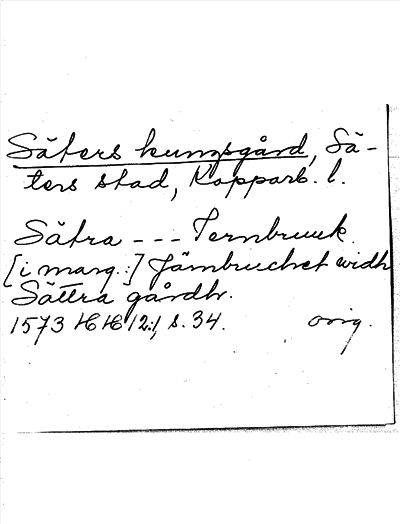 Säters kungsgård, Sä-
ters stad, Kopparb. l.
Sätra --- Jernbruuk.
[i marg.:] Jämbruchet widh
Sättra gårdh.
1573 HH 12:1, s. 34. orig.